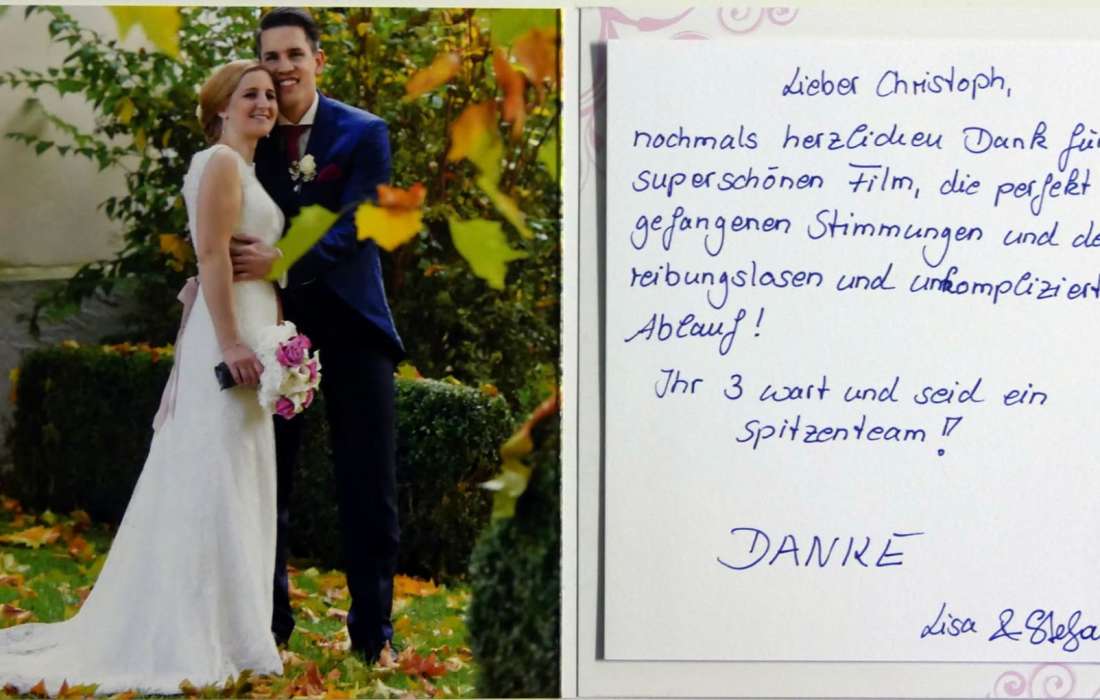 Lieber Christoph,
nochmals herzlichen Dank für
superschönen Film, die perfekt
gefangenen Stimmungen und de
reibungslosen und unkompliziert
Ablauf!
Ihr 3 wart und seid ein
Spitzenteam!
DANKE
Lisa & Stefa